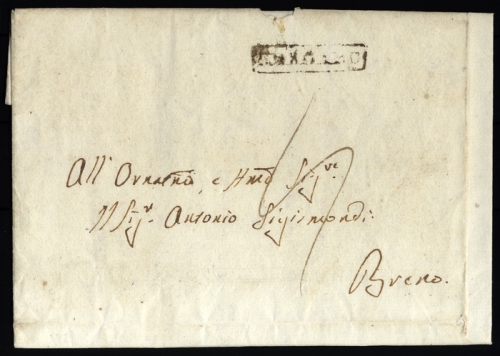 All' Ornatmo, e Amo Sigr.ve
Il Sigr. Antonio Sigismondi:
Breno.